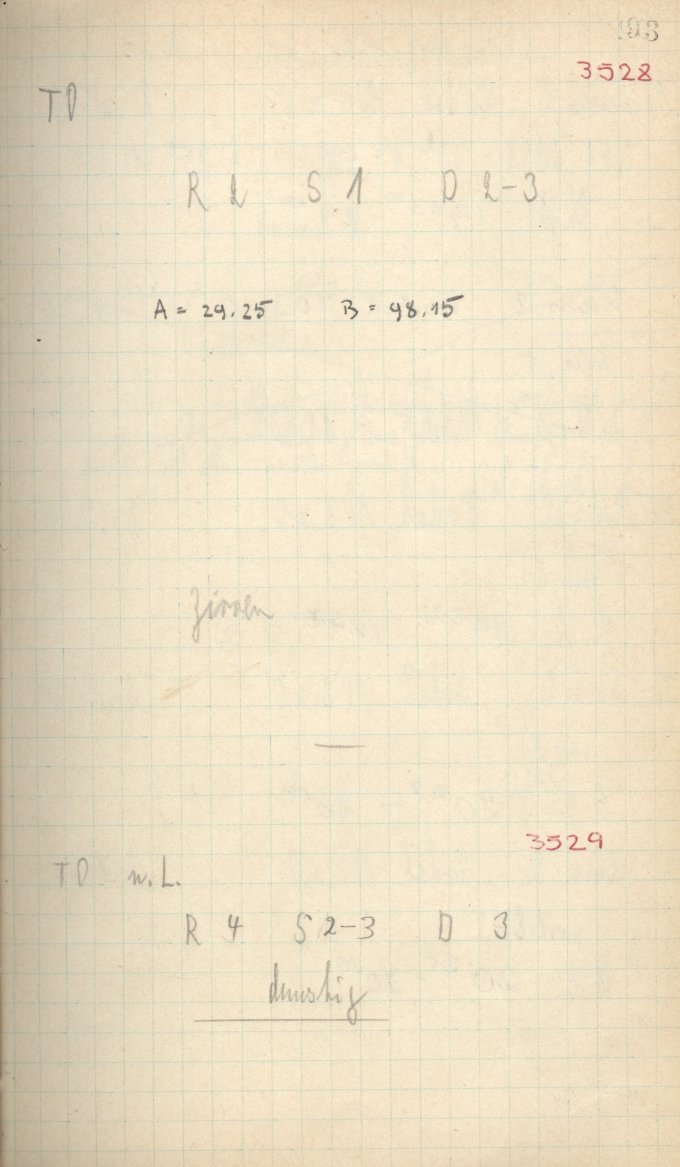 93
3528
TD
R 2 S 1 D 2-3
A = 29.25 B = 98.15
Zirren
3529
TD n.L.
R 4 S 2-3 D 3
dunstig